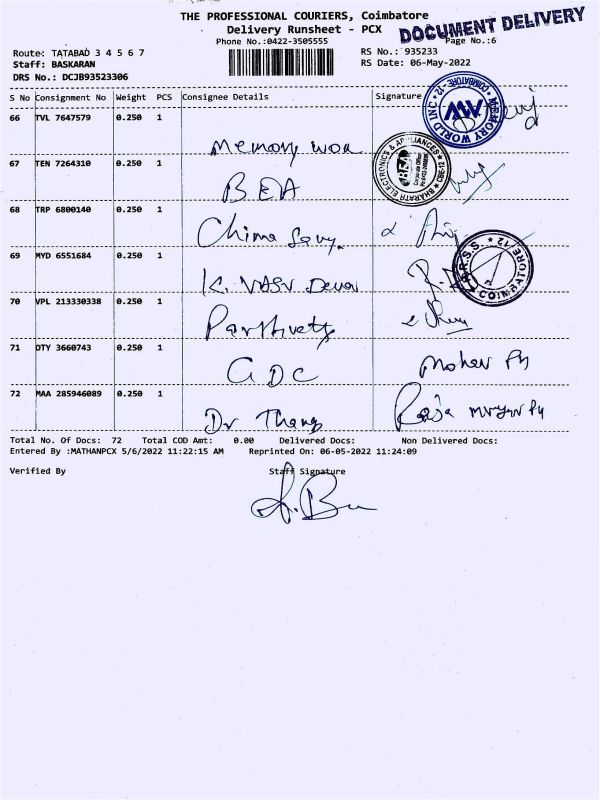 THE PROFESSIONAL COURIERS, Coimbatore
DOCUMENT DELIVERY
Delivery Runsheet - PCX
Phone No.:0422-3505555
Page No.:6
Route: TATABAD 3 4 5 6 7
RS No.: 935233
Staff: BASKARAN
RS Date: 06-May-2022
DRS No.: DCJB93523306
S No Consignment No Weight PCS Consignee Details Signature
66 TVL 7647579 0.250 1
MEMORY WORLD INC * COIMBATORE - 12 *
MW
Memory
67 TEN 7264310 0.250 1
BHARATH ELECTRONICS & APPLIANCES * CBE-12 *
BEA
BEA
68 TRP 6800140 0.250 1
China
69 MYD 6551684 0.250 1
R.S.S. * COIMBATORE-12 *
K. VASU Devan
70 VPL 213330338 0.250 1
71 DTY 3660743 0.250 1
GDC Mohan Ph
72 MAA 285946089 0.250 1
Dr Thang Raja
Total No. Of Docs: 72 Total COD Amt: 0.00 Delivered Docs: Non Delivered Docs:
Entered By :MATHANPCX 5/6/2022 11:22:15 AM Reprinted On: 06-05-2022 11:24:09
Verified By Staff Signature